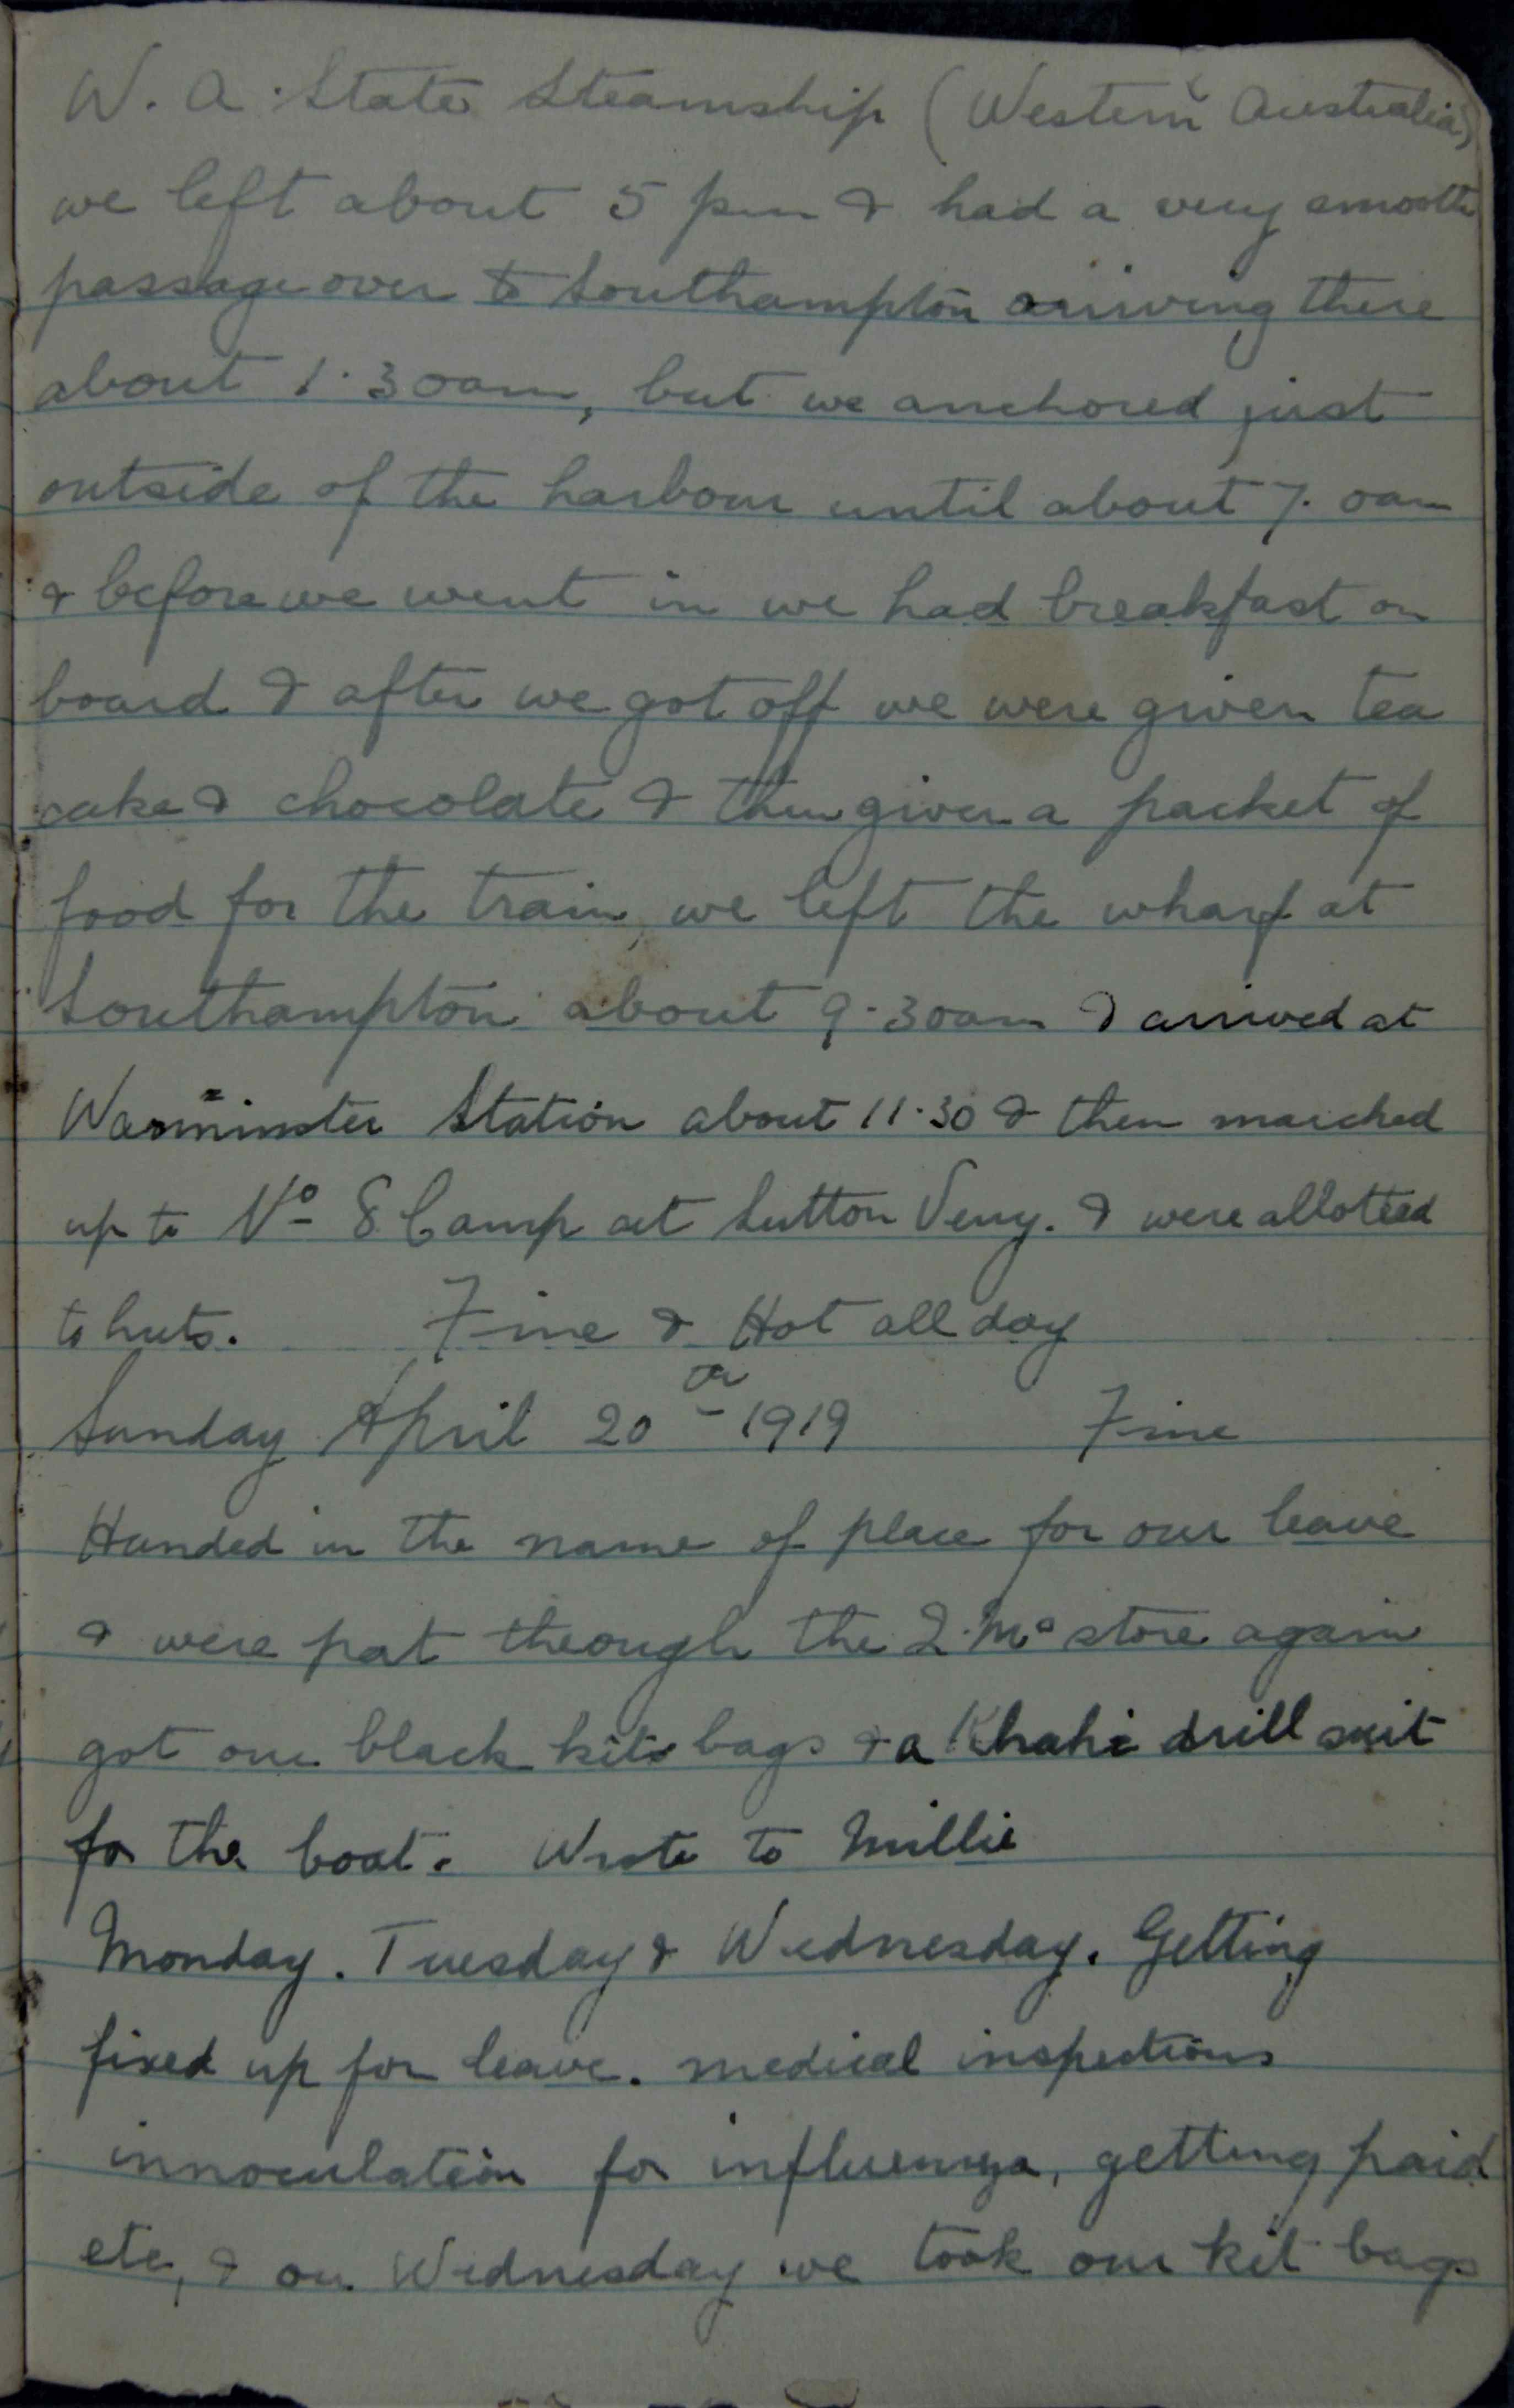 W. A. State Steamship (Western Australia)
we left about 5 pm & had a very smooth
passage over to Southampton arriving there
about 1.30am, but we anchored just
outside of the harbour until about 7.0am
& before we went in we had breakfast on
board & after we got off we were given tea
cake & chocolate & then given a packet of
food for the train, we left the wharf at
Southampton about 9.30am & arrived at
Warminster Station about 11.30 & then marched
up to No 8 Camp at Sutton Veny. & were allotted
to huts. Fine & Hot all day
Sunday April 20th 1919 Fine
Handed in the name of place for our leave
& were put through the Q.Ms store again
got our black kits bags & a Khaki drill suit
for the boat. Wrote to Millie
Monday. Tuesday & Wednesday. Getting
fixed up for leave. medical inspections
innoculation for influenza, getting paid
etc, & on Wednesday we took our kit bags